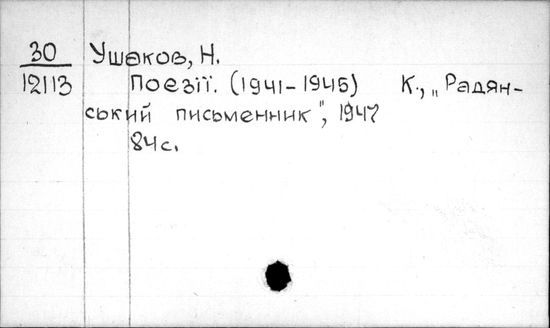 30 Ушаков, Н.
12113 Поезії. (1941-1945) К., „Радян-
ський письменник", 1947
84с.